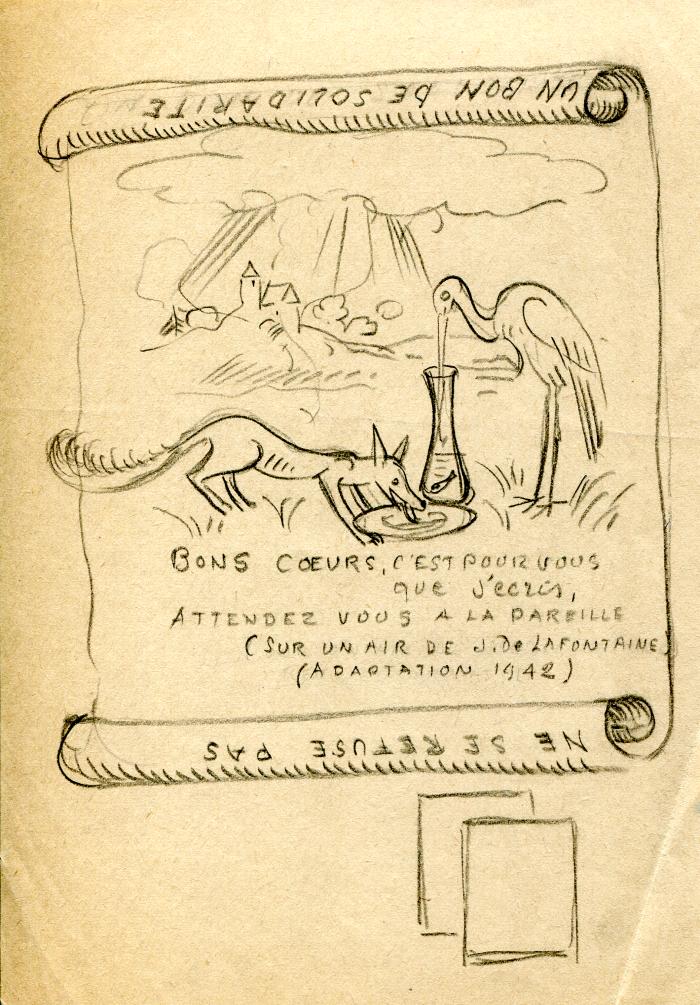 UN BON DE SOLIDARITE
BONS CŒURS, C'EST POUR VOUS
que J'ecris,
ATTENDEZ VOUS A LA PAREILLE
(SUR UN AIR DE J. De LAFONTAINE)
(ADAPTATION 1942)
NE SE REFUSE PAS